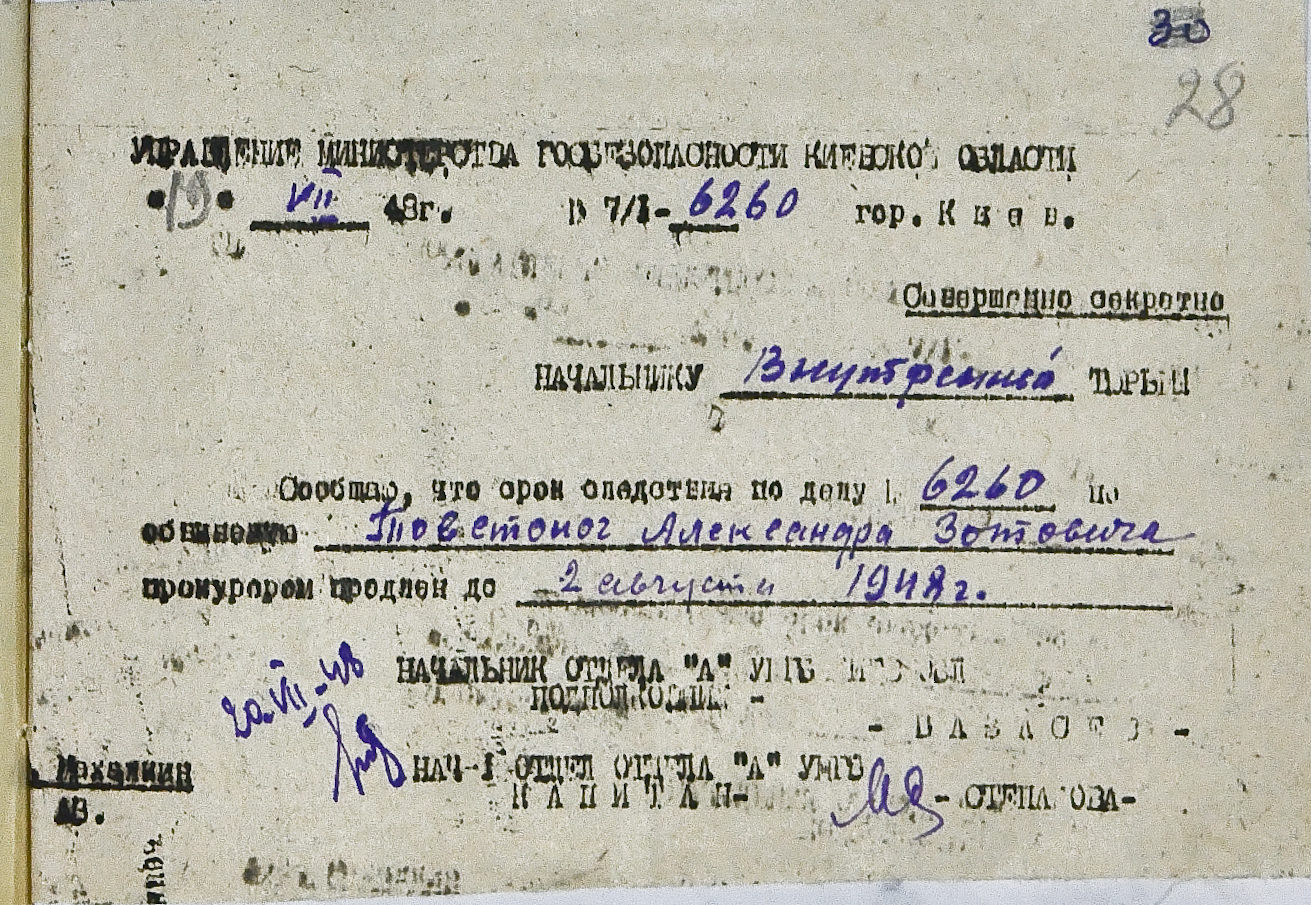 30
28
УПРАВЛЕНИЕ МИНИСТЕРСТВА ГОСБЕЗОПАСНОСТИ КИЕВСКОЙ ОБЛАСТИ
"19" VII 48г. № 7/1- 6260 гор. К и е в.
Совершенно секретно
НАЧАЛЬНИКУ Внутренней ТЮРЬМЫ
Сообщаю, что срок следствия по делу № 6260 по
обвинению Товстоног Александра Зотовича
прокурором продлен до 2 августа 1948г.
НАЧАЛЬНИК ОТДЕЛА "А" УМГБ
ПОДПОЛКОВНИК -
20.VII-48
НАЧ-1 ОТДЕЛ ОТДЕЛА "А" УМГБ
К А П И Т А Н- - СТЕПАНОВА-
АВ.